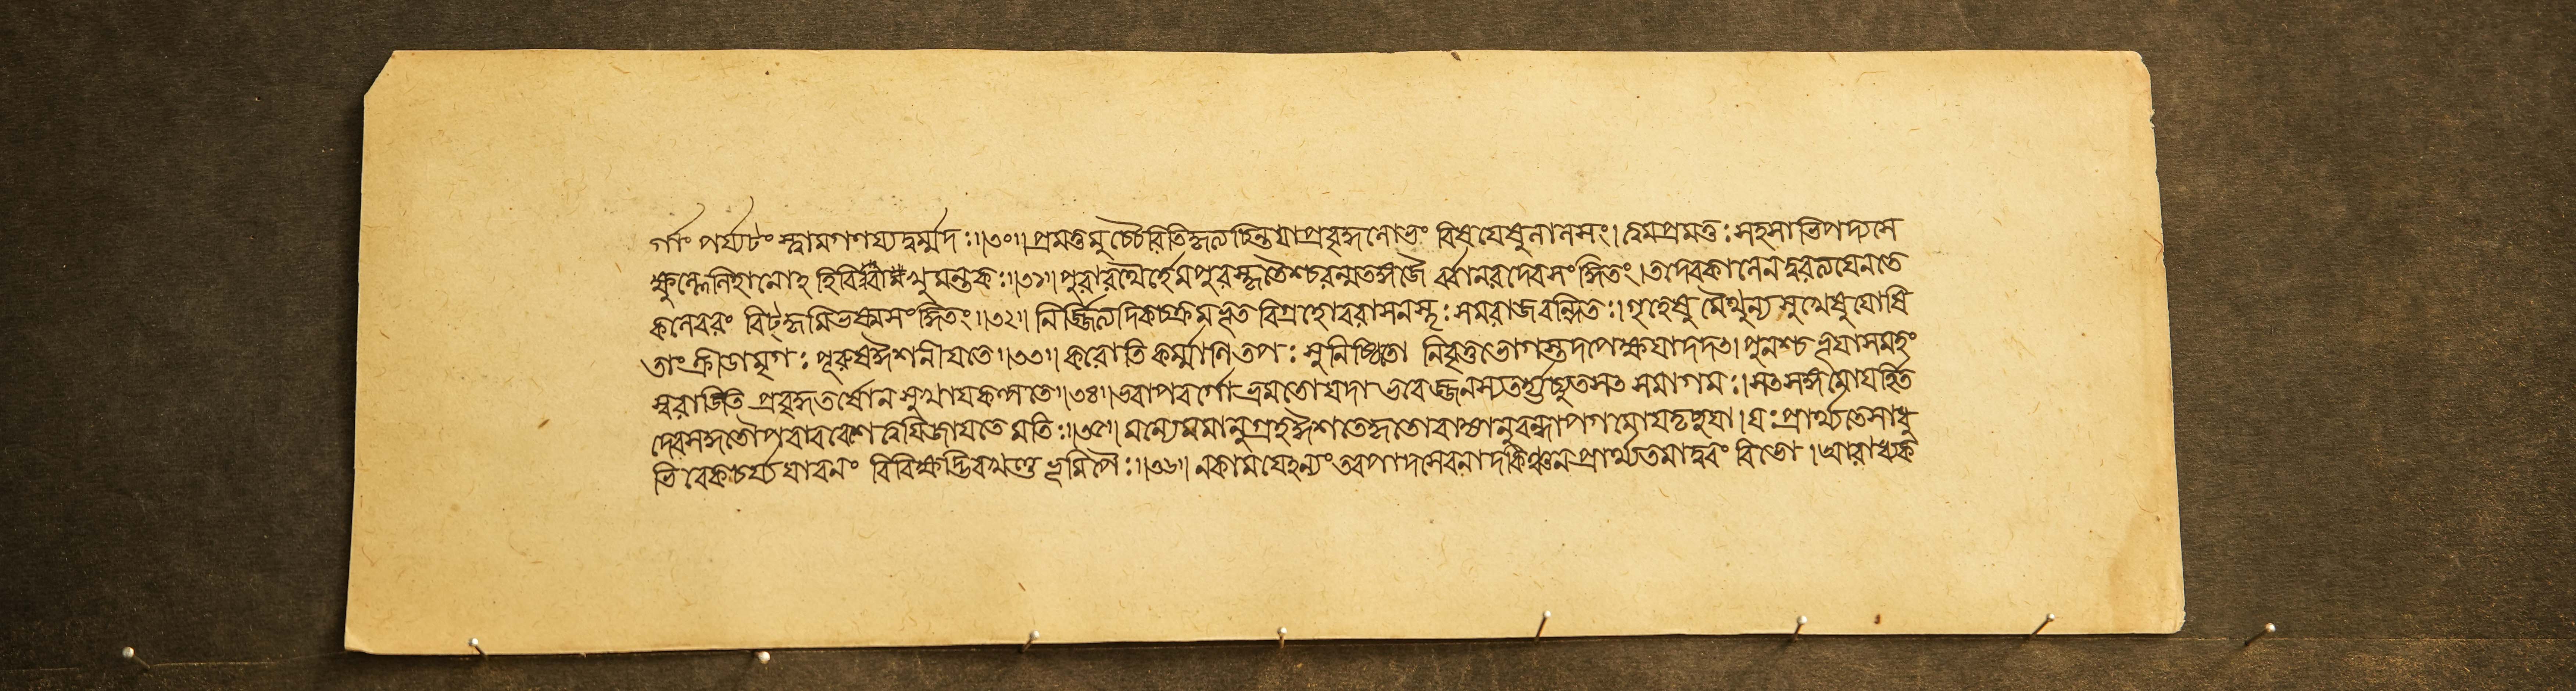 র্গাং পর্য্যটং স্ত্বামগণয্যদুর্ম্মদঃ॥৩০॥প্রমত্তমুচ্চৈরিতিকৃত্যচিন্তয়াপ্রবৃদ্ধলোভং বিষয়েষুলালসং।ত্বমপ্রমত্তঃসহসাভিপদ্যসে
ক্ষুল্লেলিহানোহ হিরিবাখুমন্তকঃ॥৩১॥পুরারথৈর্হেমপুরস্কৃতৈশ্চরন্মতঙ্গজৈ র্ব্বানরদেবসংজ্ঞিতং।তদেবকালেনদুরত্যয়েনতে
কলেবরং বিট্কৃমিভস্মসংজ্ঞিতং॥৩২॥ নির্জ্জিত্যদিকচক্রমভূত বিগ্রহোবরাসনস্থঃসমরাজবন্দিতঃ।গৃহেষু মৈথুন্য সুখেষুযোষি
তাং ক্রীডামৃগঃ পূরুষঈশনীয়তে॥৩৩॥ করোতি কর্ম্মাণিতপঃ সুনিষ্ঠিতো নিবৃত্তভোগস্তদপেক্ষয়াদদৎ।পুনশ্চ ভূয়াসমহং
স্বরাডিতি প্রবৃদ্ধতর্ষোন সুখায়কল্পতে॥৩৪॥ভবাপবর্গো ভ্রমতোযদা ভবেজ্জনস্যতর্হ্যচ্যুতসৎ সমাগমঃ।সৎসঙ্গমোযর্হিত
দেবসদ্গতৌপরাবরেশ ত্বয়িজায়তে মতিঃ॥৩৫॥ মন্যেমমানুগ্রহঈশতেকৃতোরাজ্যানুবন্ধাপগমোযদৃচ্ছয়া।যঃপ্রার্থ্যতেসাধু
ভিরেকচর্য্যয়াবনং বিবিক্ষদ্ভিরখণ্ড ভূমিপৈঃ॥৩৬॥ নকাময়েহন্যং তবপাদসেবনাদকিঞ্চনপ্রার্থ্যতমাদ্বরং বিভো।আরাধ্যক